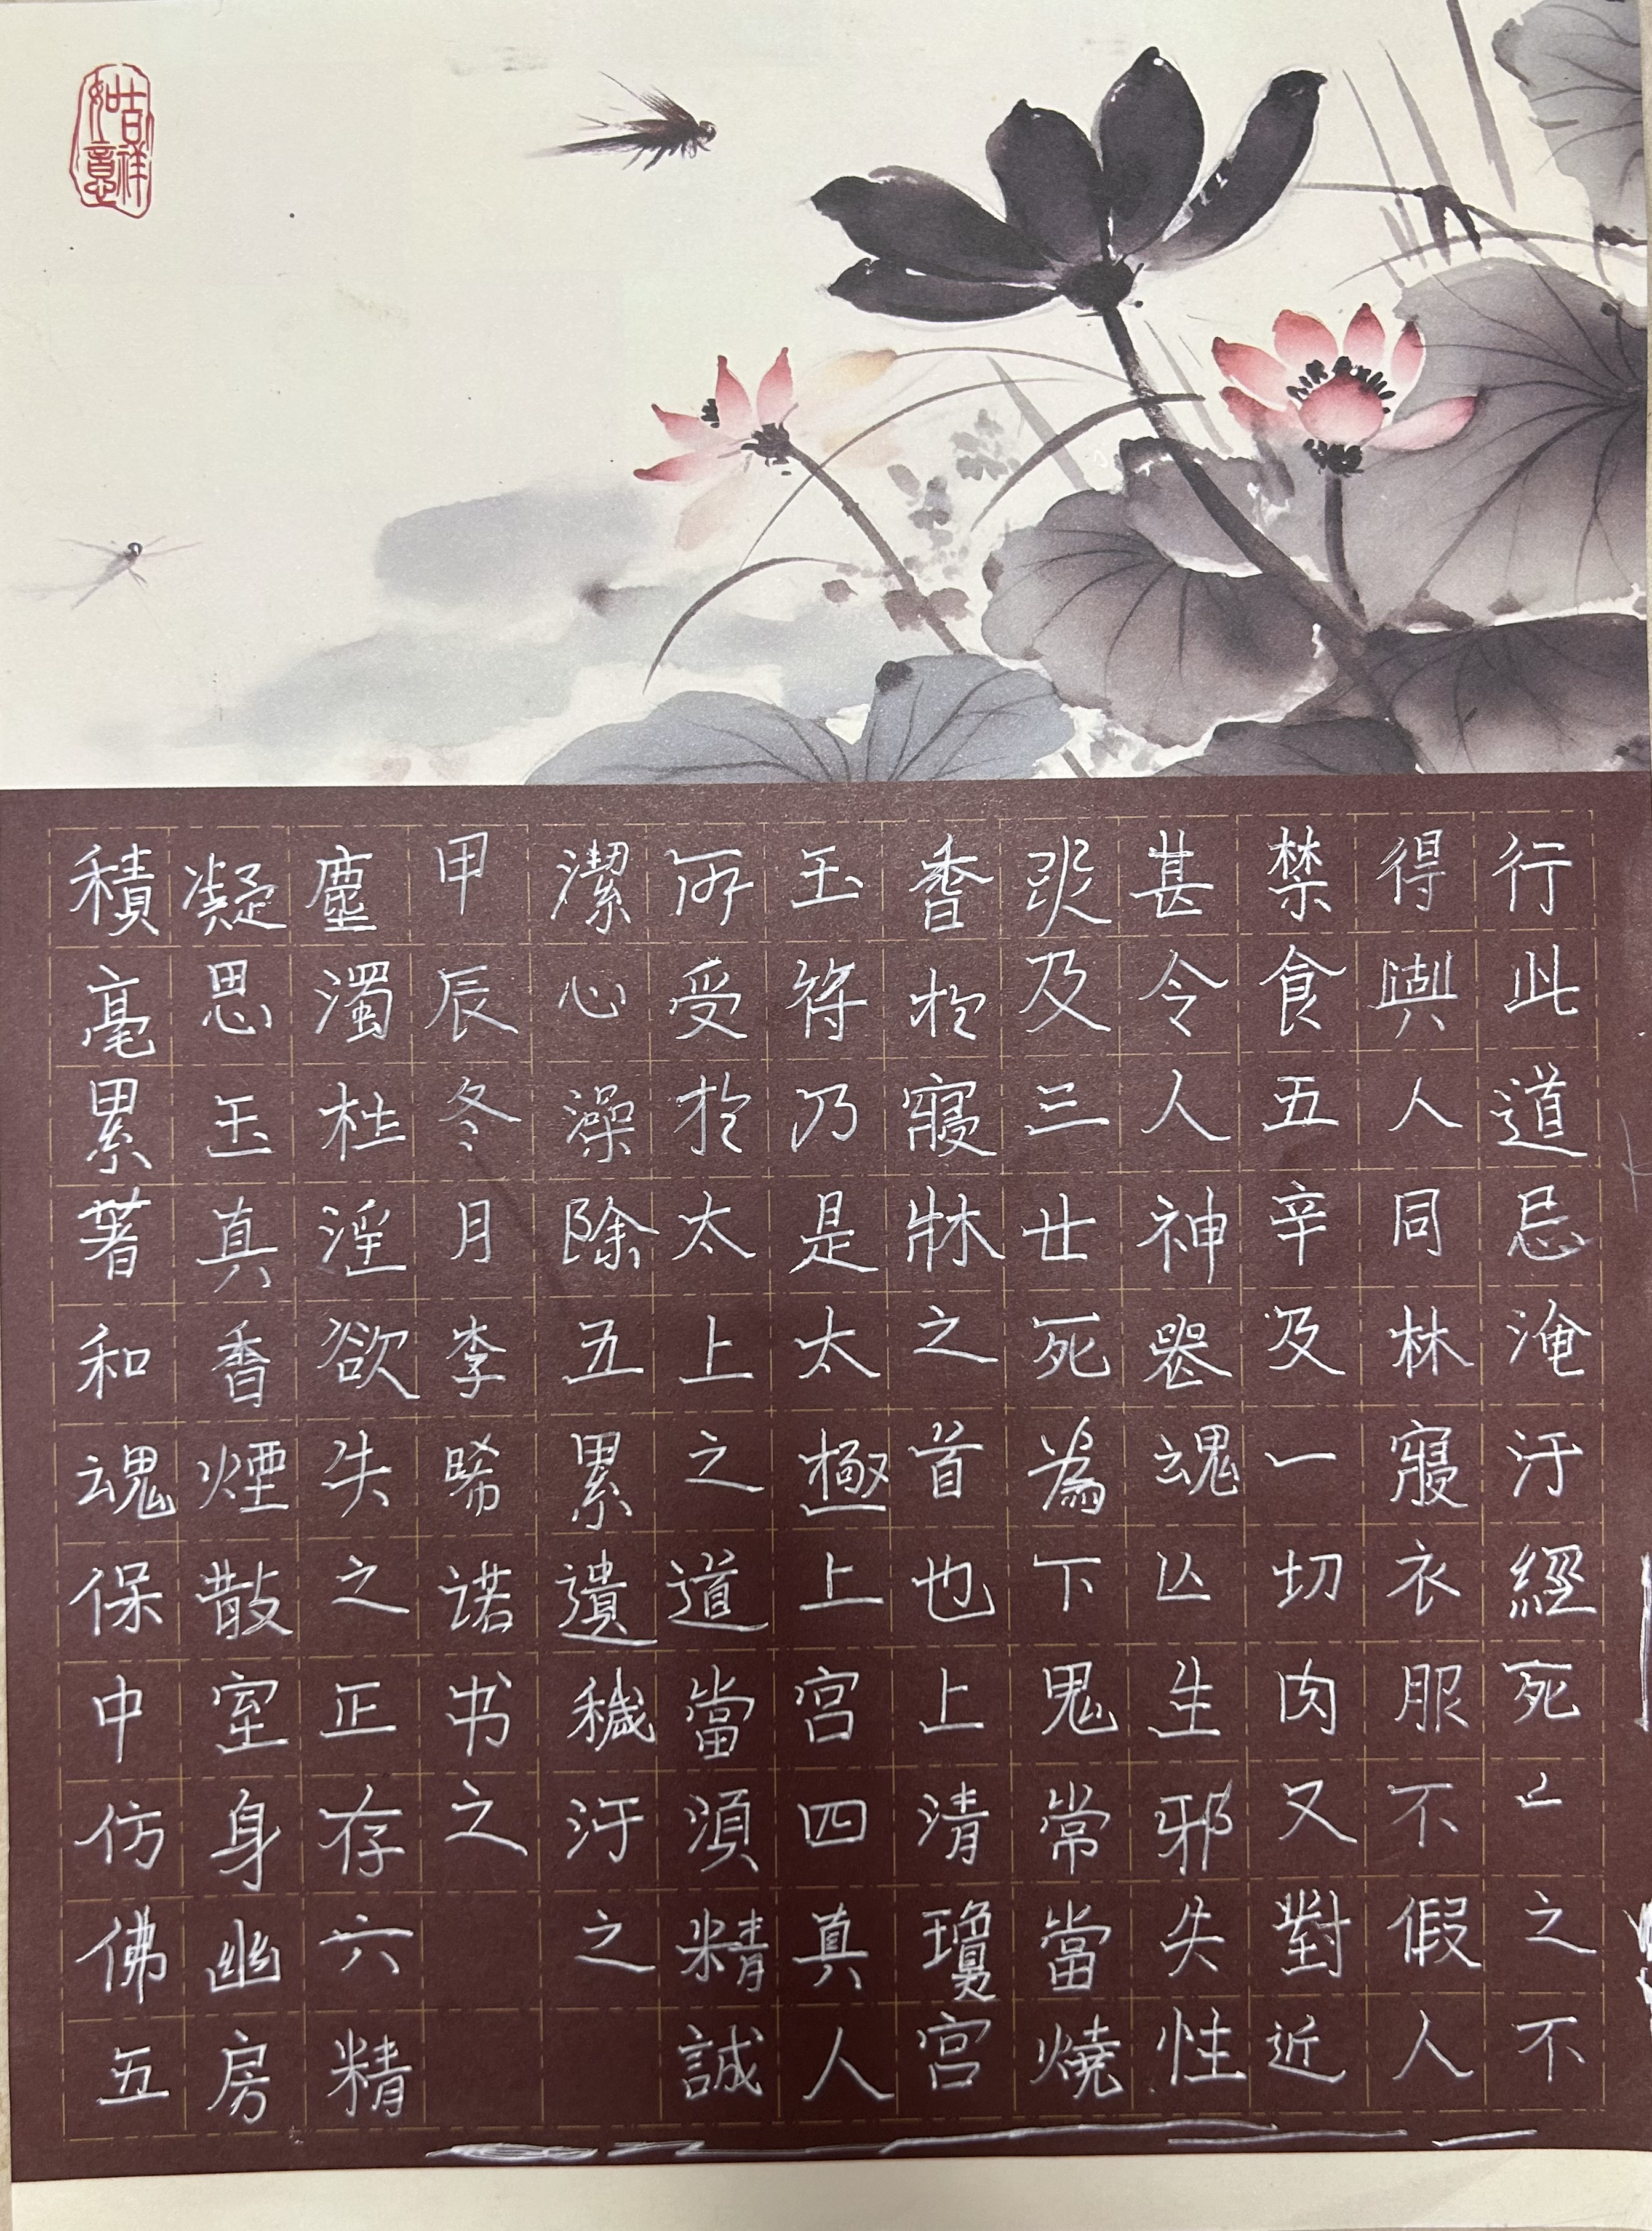 吉祥
如意
行此道忌淹汙經死亡之不
得與人同林寢衣服不假人
禁食五辛及一切肉又對近
甚令人神喪魂亾生邪失性
災及三世死為下鬼常當燒
香於寢牀之首也上清瓊宮
玉符乃是太極上宮四真人
所受於太上之道當須精誠
潔心澡除五累遺穢汙之
甲辰冬月李晞诺书之
塵濁杜淫欲失之正存六精
凝思玉真香煙散室身幽房
積毫累著和魂保中仿佛五